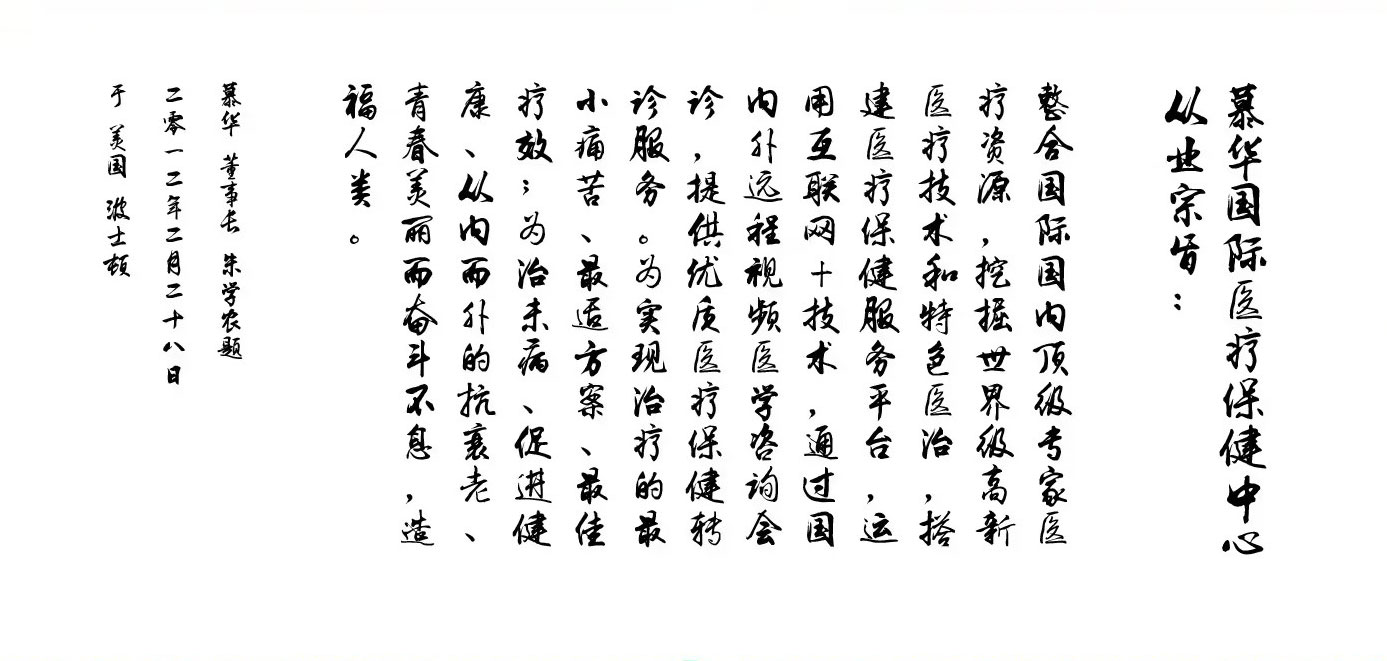 慕华国际医疗保健中心
从业宗旨：
整合国际国内顶级专家医
疗资源，挖掘世界级高新
医疗技术和特色医治，搭
建医疗保健服务平台，运
用互联网十技术，通过国
内外远程视频医学咨询会
诊，提供优质医疗保健转
诊服务。为实现治疗的最
小痛苦、最适方案、最佳
疗效；为治未病、促进健
康、从内而外的抗衰老、
青春美丽而奋斗不息，造
福人类。
慕华 董事长 朱学农题
二零一二年二月二十八日
于 美国 波士顿